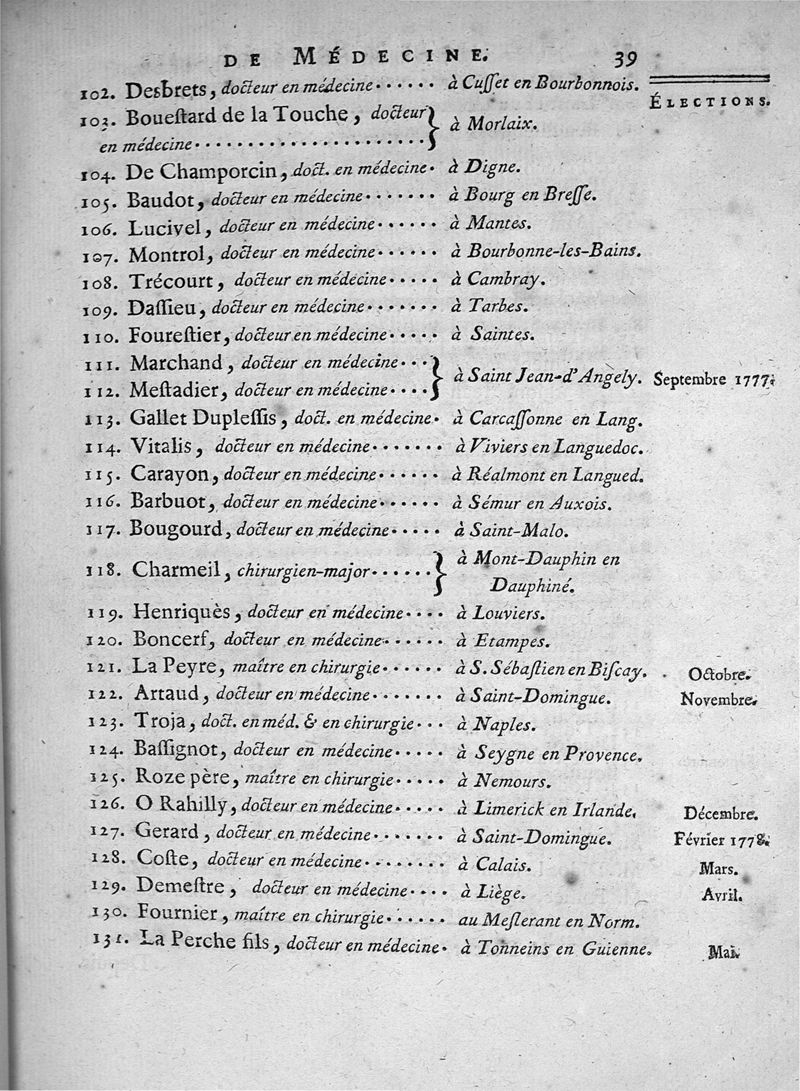 DE MÉDECINE. 39
ÉLECTIONS.
102. Desbrets, docteur en médecine · · · · · · à Cuſſet en Bourbonnois.
103. Boueſtard de la Touche, docteur
en médecine · · · · · · · · · · · · · · · · · · · · · · } à Morlaix.
104. De Champorcin, doct. en médecine · à Digne.
105. Baudot, docteur en médecine · · · · · · · à Bourg en Breſſe.
106. Lucivel, docteur en médecine · · · · · · à Mantes.
107. Montrol, docteur en médecine · · · · · · à Bourbonne-les-Bains.
108. Trécourt, docteur en médecine · · · · · à Cambray.
109. Daſſieu, docteur en médecine · · · · · · · à Tarbes.
110. Foureſtier, docteur en médecine · · · · · à Saintes.
111. Marchand, docteur en médecine · · · } à Saint Jean-d'Angely. Septembre 1777.
112. Meſtadier, docteur en médecine · · · ·
113. Gallet Dupleſſis, doct. en médecine · à Carcaſſonne en Lang.
114. Vitalis, docteur en médecine · · · · · · · à Viviers en Languedoc.
115. Carayon, docteur en médecine · · · · · · à Réalmont en Langued.
116. Barbuot, docteur en médecine · · · · · · à Sémur en Auxois.
117. Bougourd, docteur en médecine · · · · · à Saint-Malo.
118. Charmeil, chirurgien-major · · · · · · } à Mont-Dauphin en
Dauphiné.
119. Henriquès, docteur en médecine · · · · à Louviers.
120. Boncerf, docteur en médecine · · · · · · à Etampes.
121. La Peyre, maître en chirurgie · · · · · · à S. Sébaſtien en Biſcay. Octobre.
122. Artaud, docteur en médecine · · · · · · · à Saint-Domingue. Novembre.
123. Troja, doct. en méd. & en chirurgie · · · à Naples.
124. Baſſignot, docteur en médecine · · · · · à Seygne en Provence.
125. Roze père, maître en chirurgie · · · · · à Nemours.
126. O Rahilly, docteur en médecine · · · · · à Limerick en Irlande. Décembre.
127. Gerard, docteur en médecine · · · · · · · à Saint-Domingue. Février 1778.
128. Coſte, docteur en médecine · · · · · · · · à Calais. Mars.
129. Demeſtre, docteur en médecine · · · · à Liège. Avril.
130. Fournier, maître en chirurgie · · · · · · au Meſlerant en Norm.
131. La Perche fils, docteur en médecine · à Tonneins en Guienne. Mai.